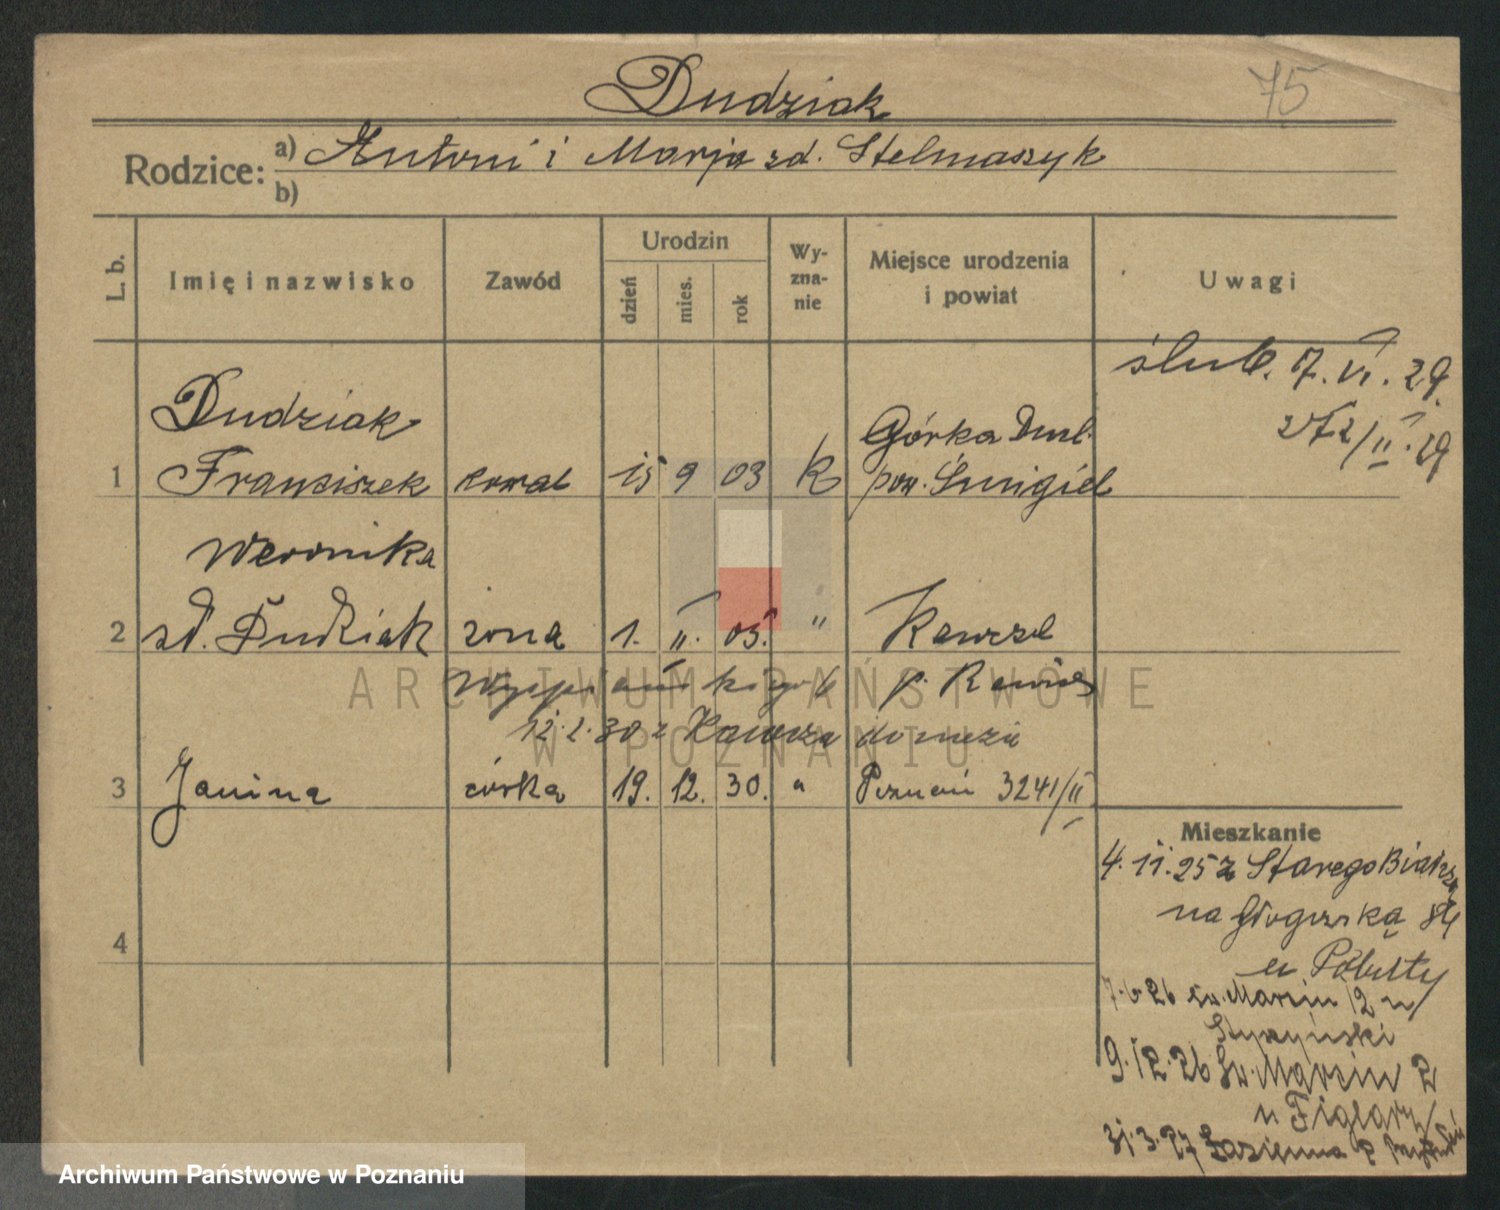 75
Dudziak
Rodzice: a) Antoni i Marja zd. Stelmaszyk
b)
L. b. Imię i nazwisko Zawód Urodzin dzień mies. rok Wy-zna-nie Miejsce urodzenia i powiat Uwagi
ślub. 7. VI. 29.
Dudziak
Górka Duch.
1 Franciszek kowal 15 9 03 K pow. Śmigiel
Weronika
2 zd. Dudziak żona 1. II. 05. " Kawcze
p. Rawicz
12.2.30 z Kawcza do męża
3 Janina córka 19. 12. 30. " Poznań 3241/II
Mieszkanie
4. 11. 25 z Starego Białcza
na Głogowską 84
u
4
7.6.26 św. Marcin 12 u
9.12.26 Św. Marcin 2
u Figlarz
31.3.27 Łazienna 2
ARCHIWUM PAŃSTWOWE
W POZNANIU
Archiwum Państwowe w Poznaniu